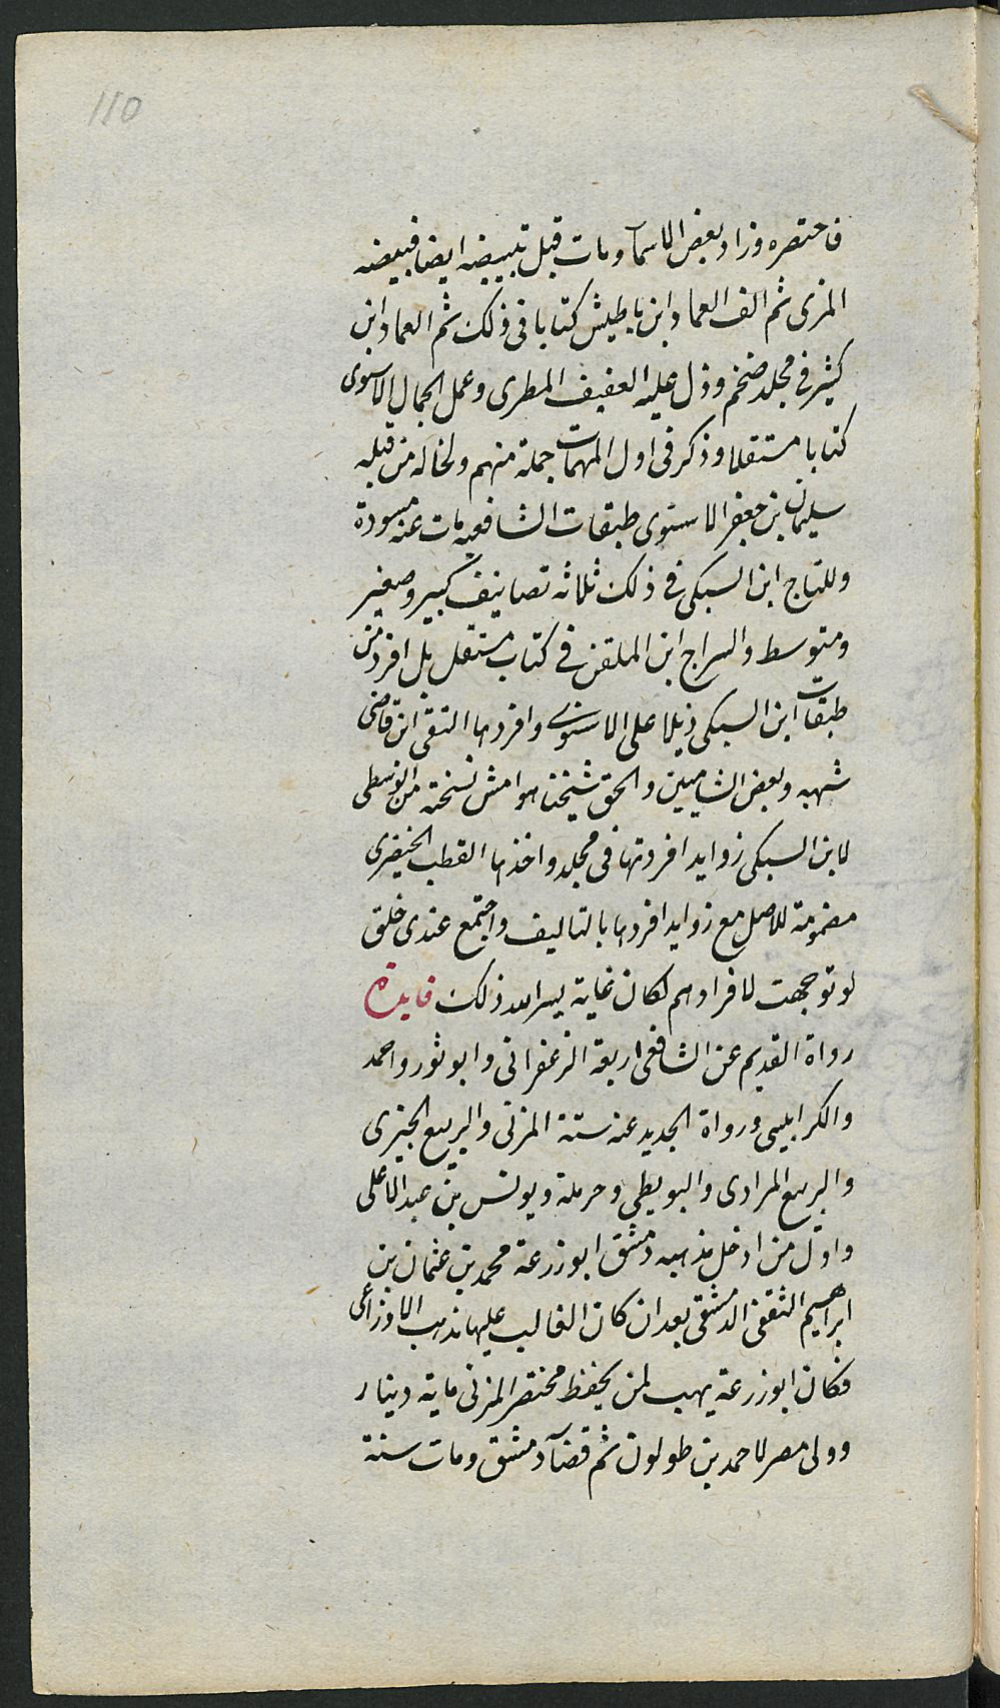 110
فاختصره وزاد بعض الاسمآ ومات قبل تبييضه ايضا فبيضه
المزى ثم الف العماد ابن باطيش كتابا فى ذلك ثم العماد ابن
كثير في مجلد ضخم وذل عليه العفيف المطرى وعمل الجمال الاسنوى
كتابا مستقلا وذكر فى اول المهمات جملة منهم ولخاله من قبله
سليمان بن جعفر الاسنوى طبقات الشافعيه مات عنه مسودة
وللتاج ابن السبكى في ذلك ثلاثه تصانيف كبير وصغير
ومتوسط والسراج ابن الملقن في كتاب مستقل بل افرد من
طبقات ابن السبكى ذيلا على الاسنوى وافردها التقى ابن قاضى
شهبه وبعض الشاميين والحق شيخنا هوامش نسخته من الوسطى
لابن السبكى زوايد افردتها فى مجلد واخذها القطب الخيضرى
مضمومة للاصل مع زوايد افردها بالتاليف واجتمع عندى خلق
لو توجهت لافرادهم لكان غاية يسر الله ذلك فايدة
رواة القديم عن الشافعى اربعة الزعفرانى وابو ثور واحمد
والكرابيسى ورواة الجديد عنه ستة المزنى والربيع الجيزى
والربيع المرادى والبويطى وحرملة ويونس بن عبد الاعلى
واول من ادخل مذهبه دمشق ابو زرعة محمد بن عثمان بن
ابراهيم الثقفى الدمشقى بعد ان كان الغالب عليها مذهب الاوزاعى
فكان ابو زرعة يهب لمن يحفظ مختصر المزنى ماية دينار
وولى مصر لاحمد بن طولون ثم قضآ دمشق ومات سنة